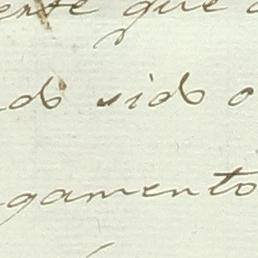 ente que
do sido o
gamento